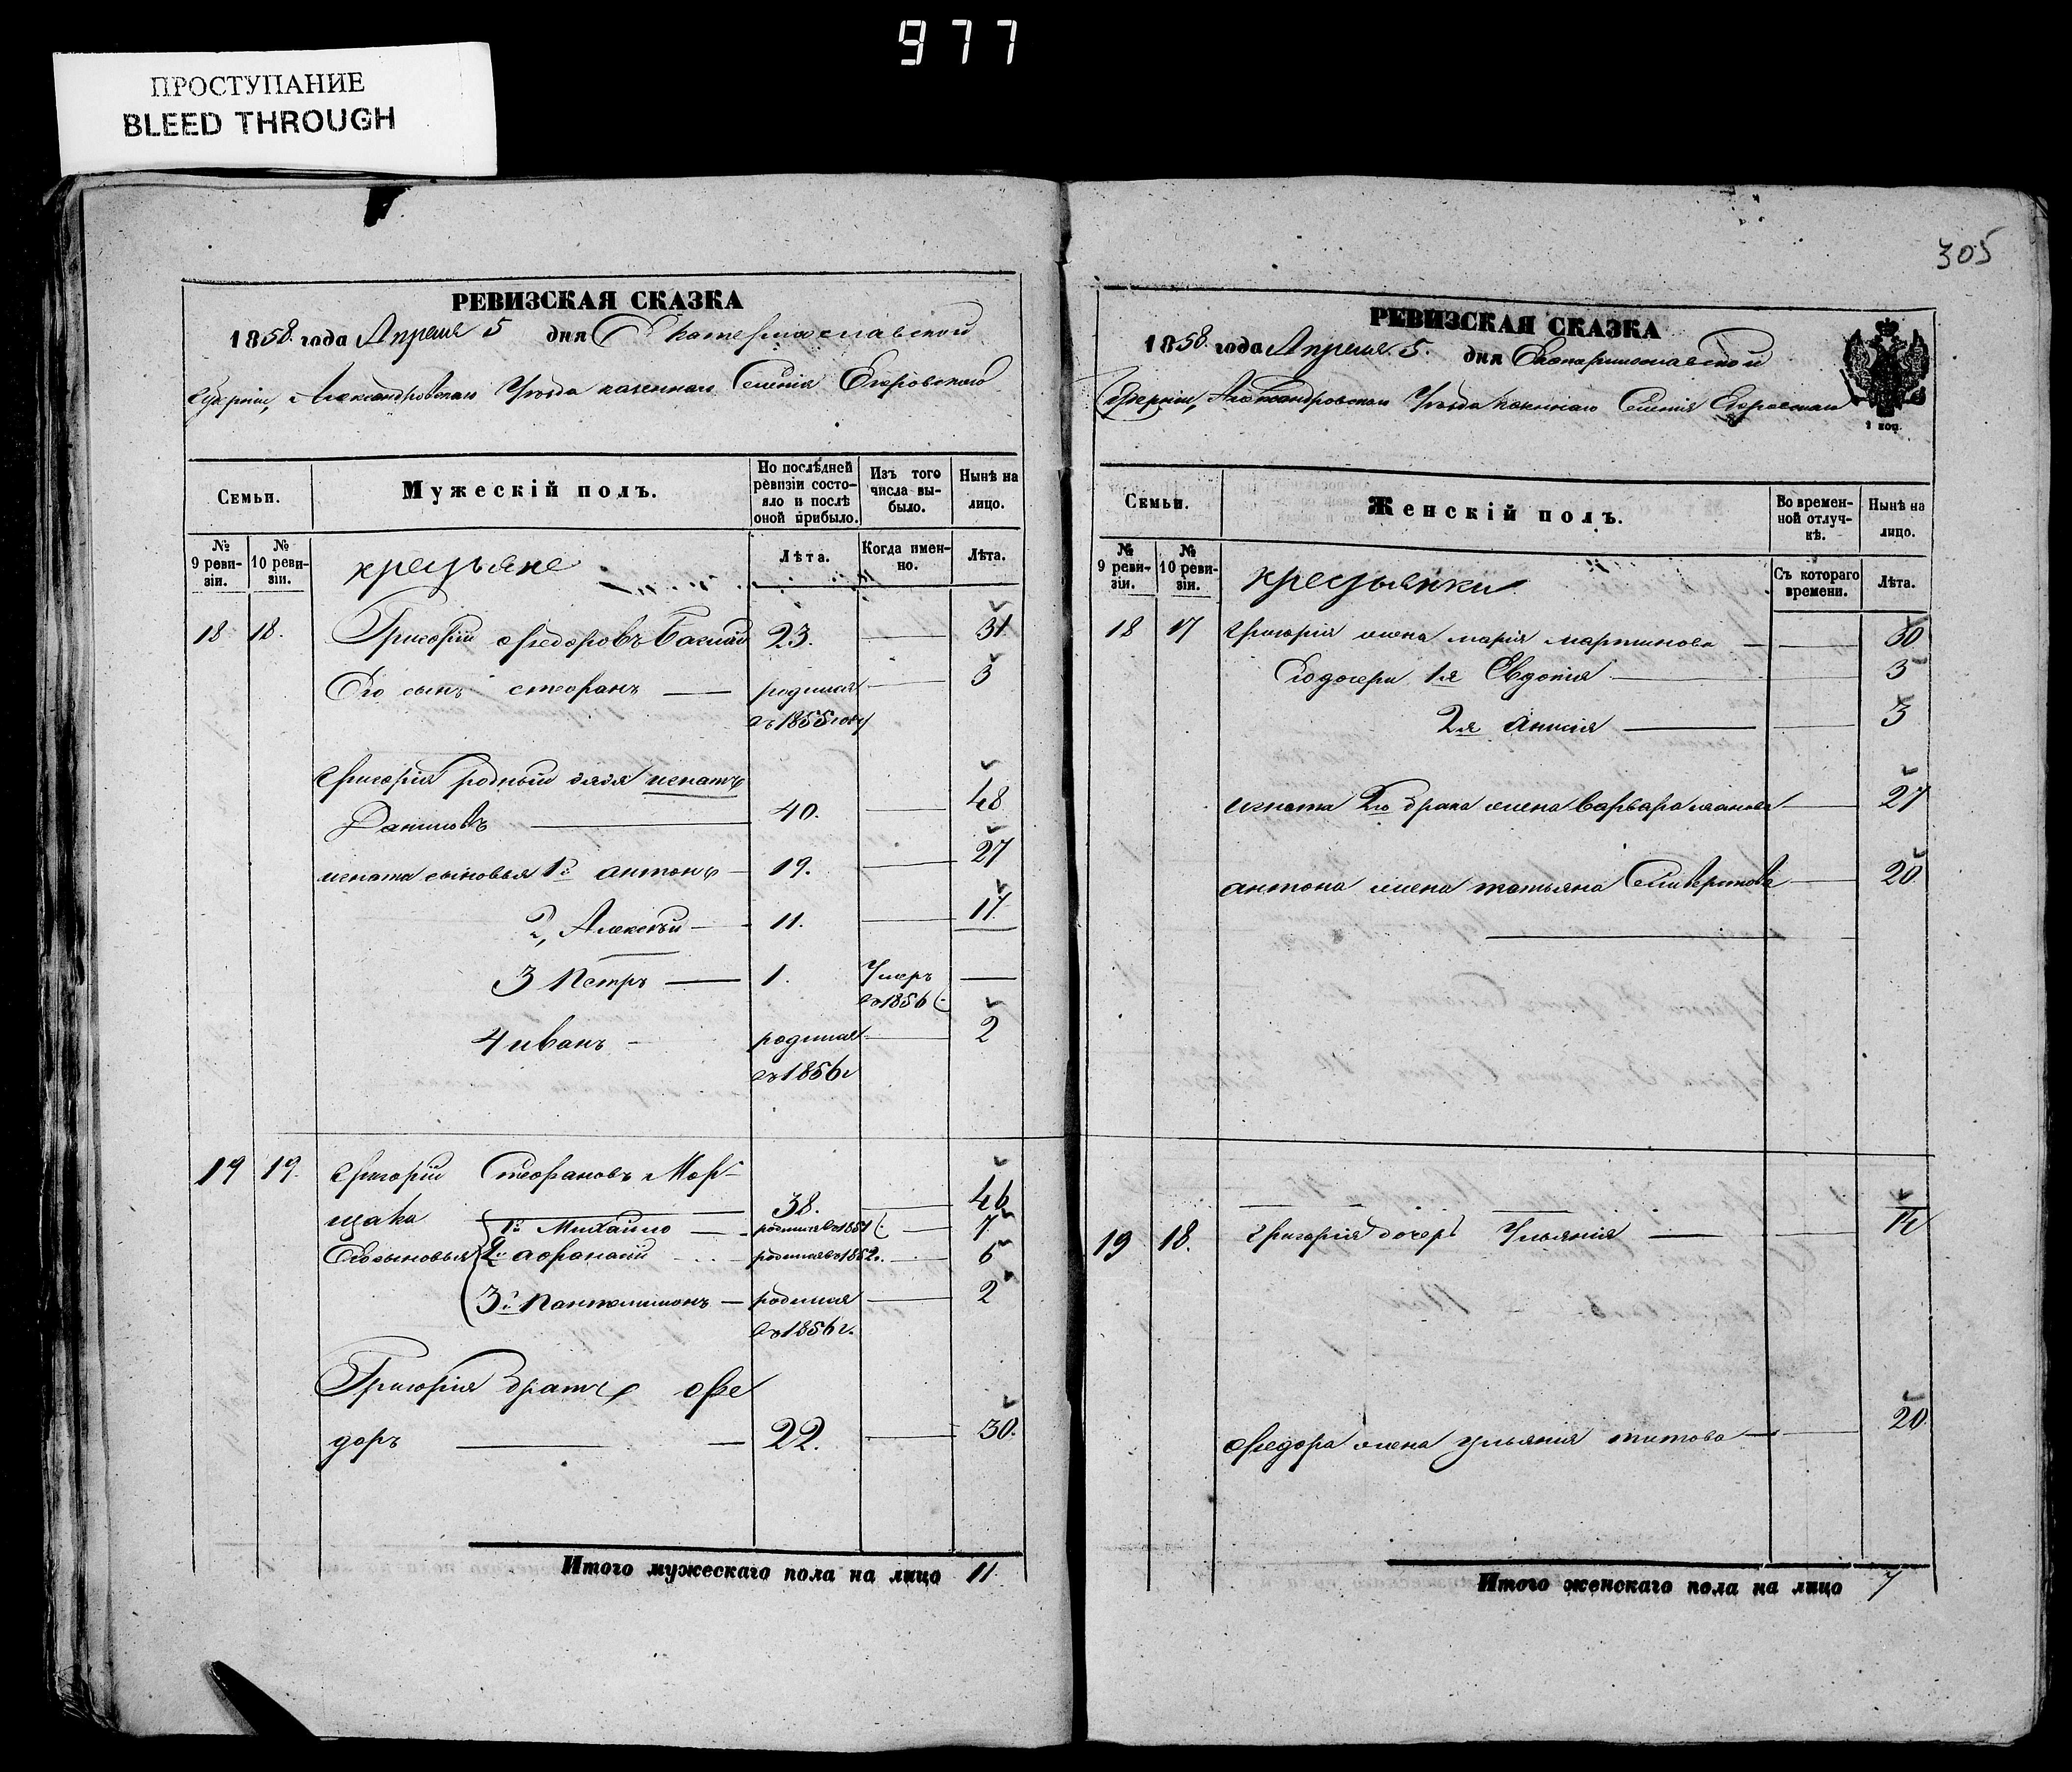 977
ПРОСТУПАНИЕ
BLEED THROUGH
305
РЕВИЗСКАЯ СКАЗКА
1858 года Апреля 5 дня Екатеринославской
Губерніи, Александровскаго Уѣзда казеннаго Селенія Егоровского
Семьи.
Мужескій полъ.
По послѣдней ревизіи состояло и послѣ оной прибыло.
Изъ того числа выбыло.
Нынѣ на лицо.
№ 9 ревизіи.
№ 10 ревизіи.
крестьяне
Лѣта.
Когда именно.
Лѣта.
18 18. Григорій Федоровъ 23. 31
Его сынъ стефанъ родился 3
въ 1855 году
Григорія родный дядя игнатъ
Даниловъ 40. 48
игната сыновья 1й антонъ 19. 27
2, Алексѣй 11. 17
3 Петръ 1. Умеръ
въ 1856
4 иванъ родился 2
въ 1856 г
19 19. Григорій Стефановъ Мор-
щака 38. 46
1й Михайло родился въ 1851 7
Его сыновья 2й афанасій родился въ 1852 г. 6
3й Пантелимонъ родился 2
въ 1856 г.
Григорія братъ фе
доръ 22. 30.
Итого мужескаго пола на лицо 11.
РЕВИЗСКАЯ СКАЗКА
1858. года Апреля 5. дня Екатеринославской
Губерніи, Александровскаго Уѣзда казеннаго Селенія Егоровскаго
1 коп.
Семьи.
Женскій полъ.
Во временной отлучкѣ.
Нынѣ на лицо.
№ 9 ревизіи.
№ 10 ревизіи.
крестьянки
Съ котораго времени.
Лѣта.
18 17 Григорія жена марія мартинова 30
Его дочери 1я Евдокія 5
2я анисія 3
игната 2го брака жена варвара иванова 27
антона жена татьяна Селиверстова 20
19 18. Григорія дочерь Ульянія 14
федора жена ульянія титова 20.
Итого женскаго пола на лицо 7